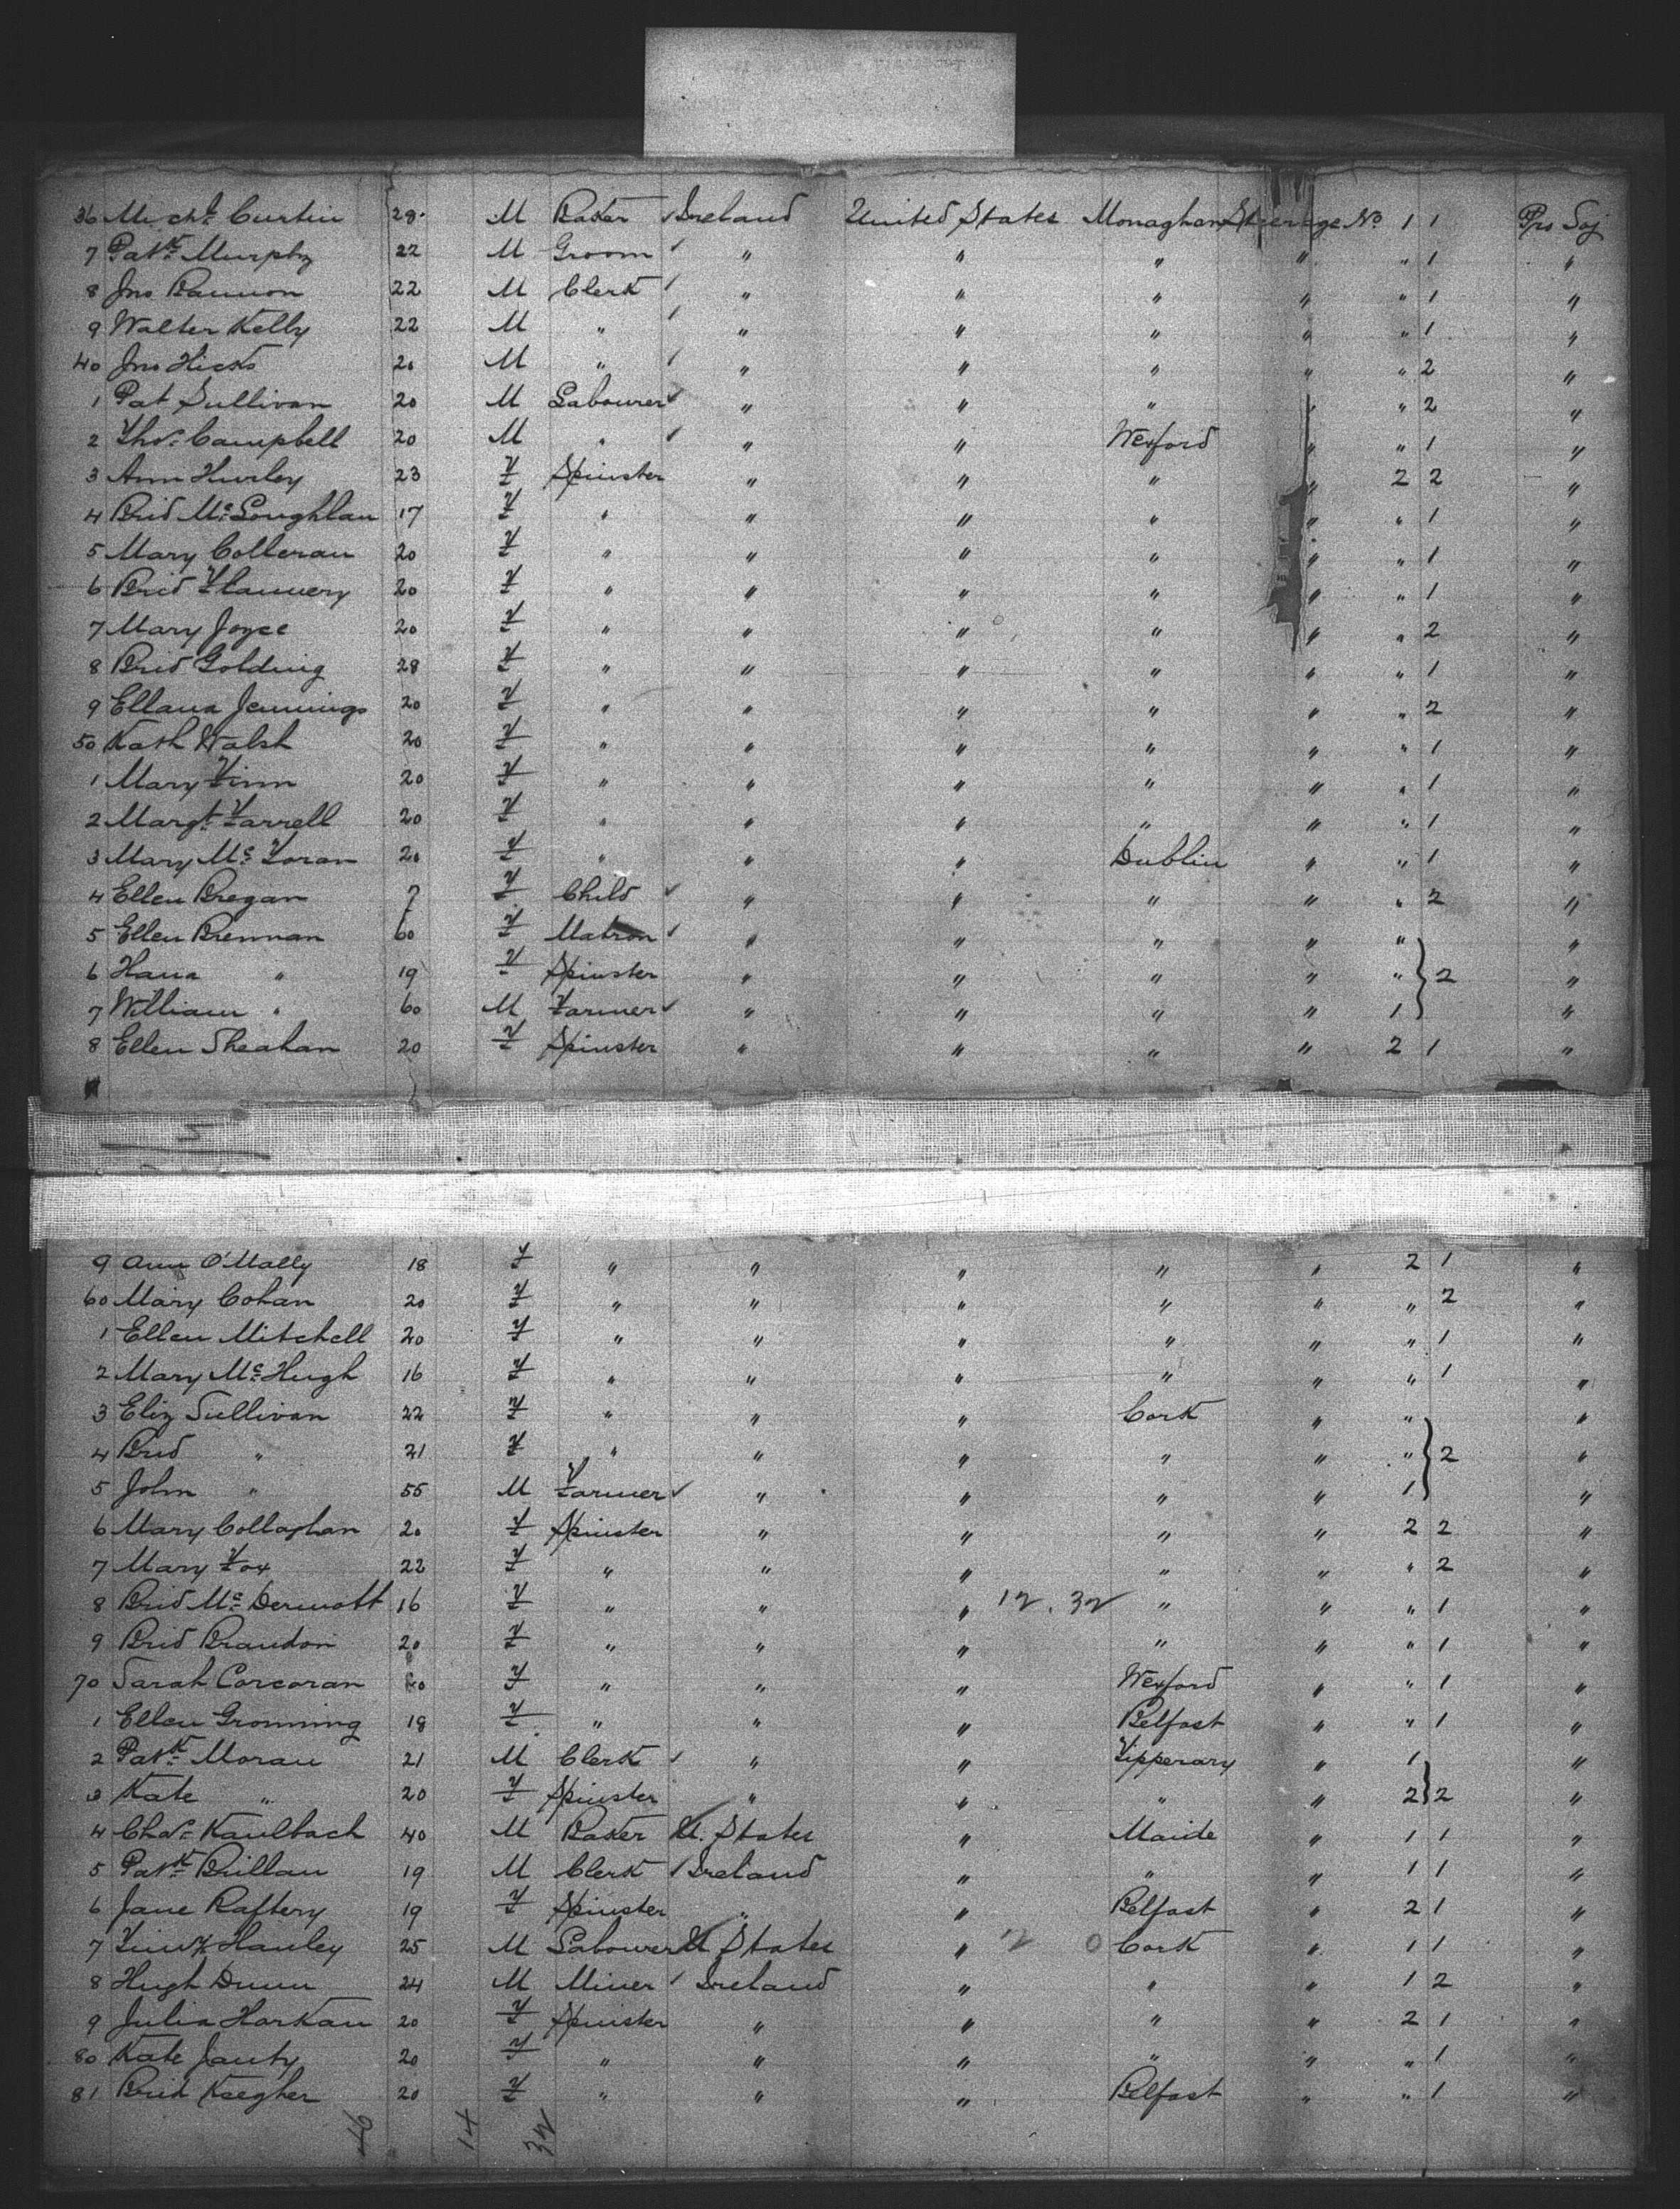 36 Mich.l Curtin 28 M Baker ✓ Ireland United States Monaghan Steerage No. 1 1 Pro Soj
7 Patk. Murphy 22 M Groom ✓ " " " " " 1 "
8 Jno Bannon 22 M Clerk ✓ " " " " " 1 "
9 Walter Kelly 22 M " ✓ " " " " " 1 "
40 Jno Hicks 20 M " ✓ " " " " " 2 "
1 Pat Sullivan 20 M Labourer ✓ " " " " " 2 "
2 Thos. Campbell 20 M " ✓ " " Wexford " " 1 "
3 Ann Hurley 23 F Spinster " " " " 2 2 "
4 Brid McLoughlan 17 F " " " " " " 1 "
5 Mary Colleran 20 F " " " " " " 1 "
6 Brid Flannery 20 F " " " " " " 1 "
7 Mary Joyce 20 F " " " " " " 2 "
8 Brid Golding 28 F " " " " " " 1 "
9 Ellana Jennings 20 F " " " " " " 2 "
50 Kath Walsh 20 F " " " " " " 1 "
1 Mary Finn 20 F " " " " " " 1 "
2 Margt. Farrell 20 F " " " " " " 1 "
3 Mary McForan 20 F " " " Dublin " " 1 "
4 Ellen Bregan 7 F Child ✓ " " " " " 2 "
5 Ellen Brennan 60 F Matron ✓ " " " " " "
6 Hana " 19 F Spinster " " " " " } 2 "
7 William " 60 M Farmer ✓ " " " " 1 "
8 Ellen Sheahan 20 F Spinster " " " " 2 1 "
9 Ann O'Mally 18 F " " " " " 2 1 "
60 Mary Cohan 20 F " " " " " " 2 "
1 Ellen Mitchell 20 F " " " " " " 1 "
2 Mary McHugh 16 F " " " " " " 1 "
3 Eliz Sullivan 22 F " " " Cork " " "
4 Brid " 21 F " " " " " " } 2 "
5 John " 55 M Farmer ✓ " " " " 1 "
6 Mary Collaghan 20 F Spinster " " " " 2 2 "
7 Mary Fox 22 F " " " " " " 2 "
8 Brid McDermott 16 F " " " 12.32 " " " 1 "
9 Brid Brandon 20 F " " " " " " 1 "
70 Sarah Corcoran 20 F " " " Wexford " " 1 "
1 Ellen Gronning 18 F " " " Belfast " " 1 "
2 Patk. Moran 21 M Clerk ✓ " " Tipperary " 1 "
3 Kate " 20 F Spinster " " " " 2 } 2 "
4 Chas. Kaulbach 40 M Baker U. States " Maide " 1 1 "
5 Patk. Brillan 19 M Clerk ✓ Ireland " " " 1 1 "
6 Jane Raftery 19 F Spinster " " Belfast " 2 1 "
7 Hanley 25 M Labourer U States " Cork " 1 1 "
8 Hugh Dunn 24 M Miner ✓ Ireland " " " 1 2 "
9 Julia Harkan 20 F Spinster " " " " 2 1 "
80 Kate Janty 20 F " " " " " " 1 "
81 Brid Keegher 20 F " " " Belfast " " 1 "
46 14 32